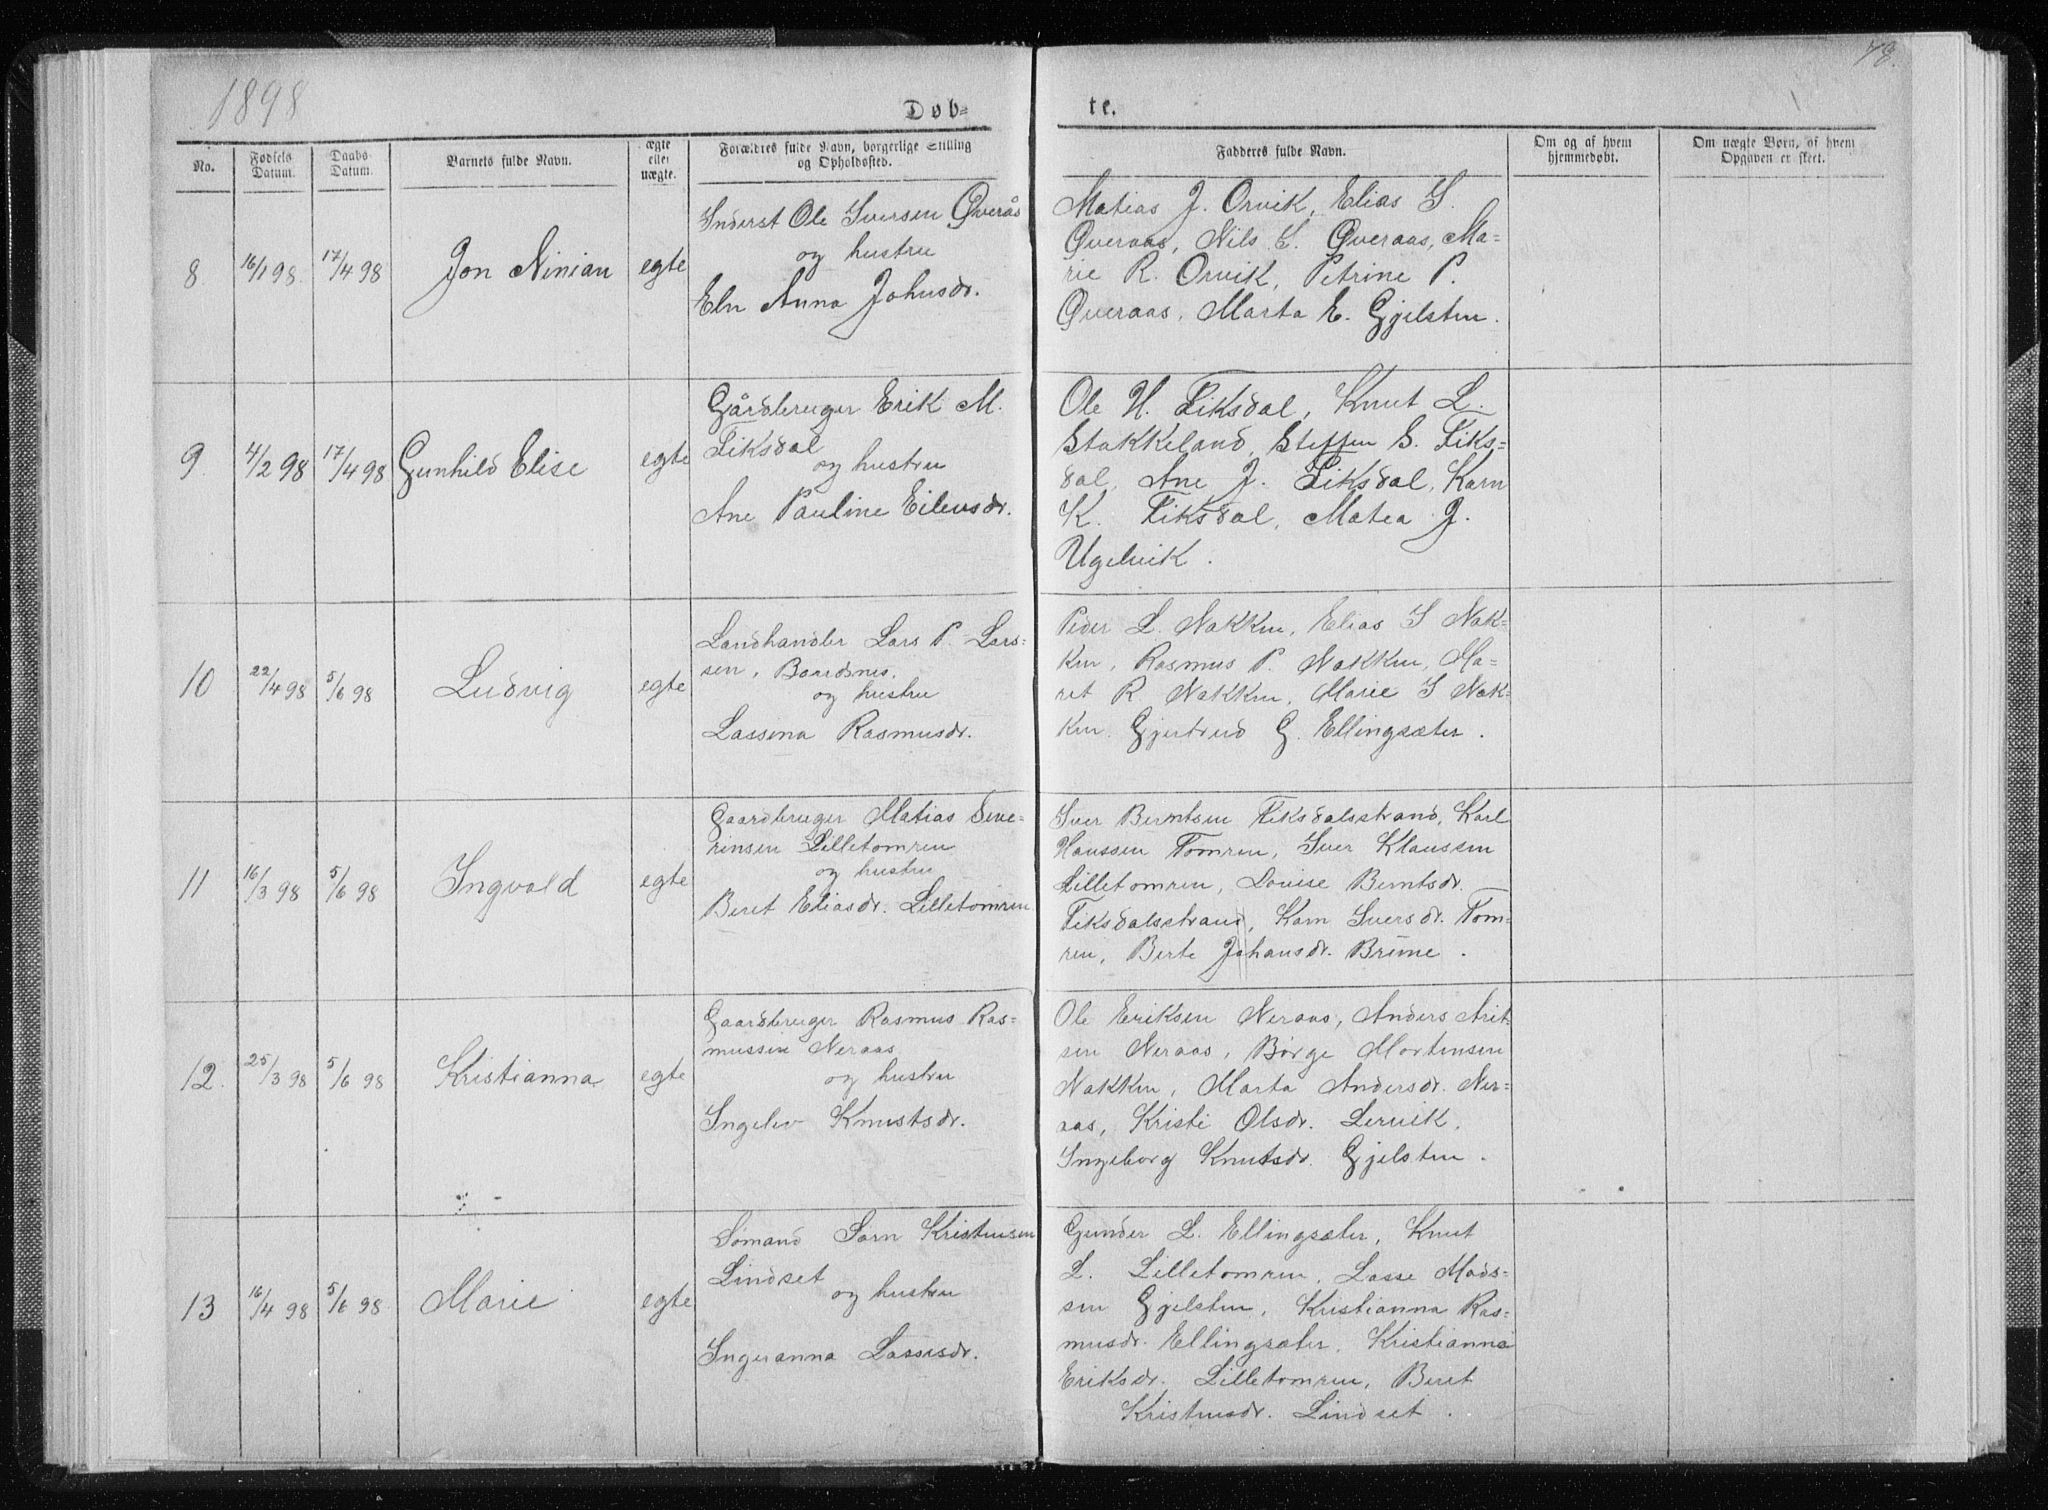 1898
78.
Døb-
te.
No.
Fødsels
Datum.
Daabs
Datum.
Barnets fulde Navn.
ægte
eller
uægte.
Forældres fulde Navn, borgerlige Stilling
og Opholdssted.
Fadderes fulde Navn.
Om og af hvem
hjemmedøbt.
Om uægte Børn, af hvem
Opgaven er skeet.
8
16/1 98
17/4 98
Jon Ninian
egte
Inderst Ole Iversen Øverås
og hustru
Eln Anna Johnsdr.
Matias J. Orvik, Elias I.
Øveraas, Nils I. Øveraas, Ma-
rie R. Orvik, Petrine P.
Øveraas, Marta E. Gjelsten.
9
4/2 98
17/4 98
Gunhild Elise
egte
Gårdbruger Erik M.
Fiksdal
og hustru
Ane Pauline Eilevsdr.
Ole H. Fiksdal, Knut L.
Stokkeland, Steffen S. Fiks-
dal, Ane J. Fiksdal, Karn
K. Fiksdal, Matea J.
Ugelvik.
10
22/4 98
5/6 98
Ludvig
egte
Landhandler Lars P. Lars-
sen, Baardsnes.
og hustru
Lassina Rasmusdr.
Peder L. Nakken, Elias I Nak-
ken, Rasmus P. Nakken, Ma-
ret R Nakken, Marie I Nak-
ken. Gjertrud G. Ellingsæter.
11
16/3 98
5/6 98
Ingvald
egte
Gaardbruger Matias Seve-
rinsen Lilletomren
og hustru
Beret Eliasdr. Lilletomren
Iver Berntsen Fiksdalsstrand, Karl
Hanssen Tomren, Iver Klaussen
Lilletomren, Lovise Berntsdr.
Fiksdalsstrand, Karn Iversdr. Tom-
ren, Berte Johansdr. Brune.
12.
25/3 98
5/6 98
Kristianna
egte
Gaardbruger Rasmus Ras-
mussen Neraas
og hustru
Ingelev Knutsdr.
Ole Eriksen Neraas, Anders Arit-
sen Neraas, Børge Mortensen
Nakken, Marta Andersdr. Ner-
aas, Kristi Olsdr. Lervik,
Ingeborg Knutsdr. Gjelsten.
13
16/4 98
5/6 98
Marie
egte
Sømand Sørn Kristensen
Lindset
og hustru
Ingeranna Lassesdr.
Gunder L. Ellingsæter, Knut
L. Lilletomren, Lasse Mads-
sen Gjelsten, Kristianna Ras-
musdr. Ellingsæter, Kristianna
Eriksdr. Lilletomren, Beret
Kristensdr. Lindset.